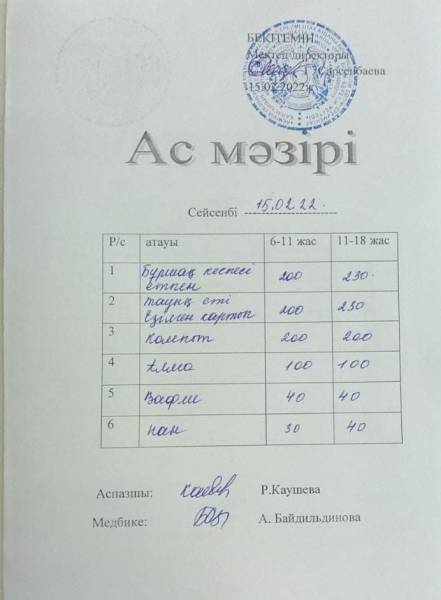 БЕКІТЕМІН
Мектеп директоры
Г. Сәрсенбаева
15.02.2022ж
Ас мәзірі
Сейсенбі 15.02.22.
Р/с атауы 6-11 жас 11-18 жас
1 Бұршақ кеспесі етпен 200 230
2 тауық еті Езілмен картоп 200 230
3 Компот 200 200
4 Алма 100 100
5 Вафли 40 40
6 нан 30 40
Аспазшы: Р.Каушева
Медбике: А. Байдильдинова